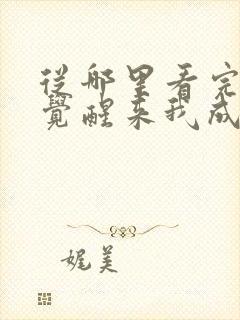 從那里看完
覺醒来我成
娓美